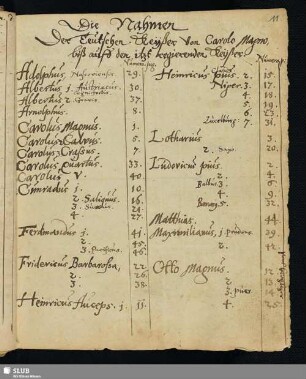 11
Die Nahmen
Der Teutschen Keyser von Carolo Magno,
biß auff den itzt regierenden Keyser.
Adolphus, 29.
Albertus j. Austriacus 30.
Albertus 2. 37.
Arnolphus. 8.
Carolus Magnus. 1.
Carolus Calvus. 5.
Carolus Crassus. 7.
Carolus Quartus. 33.
Carolus V. 40.
Conradus j. 10.
2. Saliqus. 16.
3. 24.
4.
Ferdinandus j. 41.
2. 45.
3. 46.
Fridericus Barbarossa, 22.
2. 26.
3. 38.
Heinricus Auceps. j. 11.
Heinricus pius. 2. 15.
Niger. 3. 17.
4. 18.
5.
6.
7. 31.
Lotharius 3.
2. 20.
Ludovicus pius. 2.
2. 4.
Balbus 3. 6.
4. 9.
5. 32.
Matthias. 44.
Maxmilianus, j. 39.
2. 42.
Otto Magnus. 12.
2. 13.
3. 14.
4. 25.
SLUB
Wir führen Wissen.